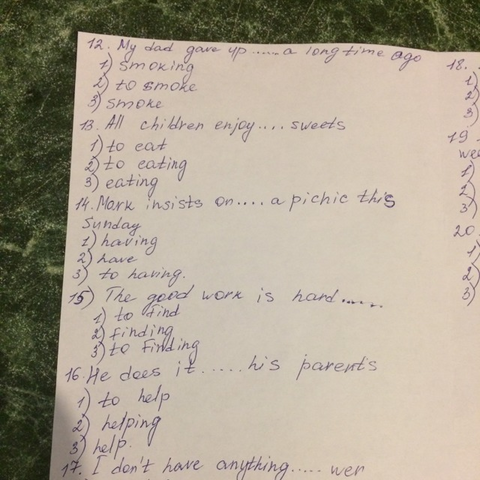 12. My dad gave up..... a long time ago
1) smoking
2) to smoke
3) smoke
13. All children enjoy.... sweets
1) to eat
2) to eating
3) eating
14. Mark insists on.... a pichic this
Sunday
1) having
2) have
3) to having.
15) The good work is hard......
1) to find
2) finding
3) to finding
16. He does it...... his parents
1) to help
2) helping
3) help.
17. I don't have anything..... wer
18.
1)
2)
3)
19
wee
1)
2)
3)
20.
1)
2)
3)